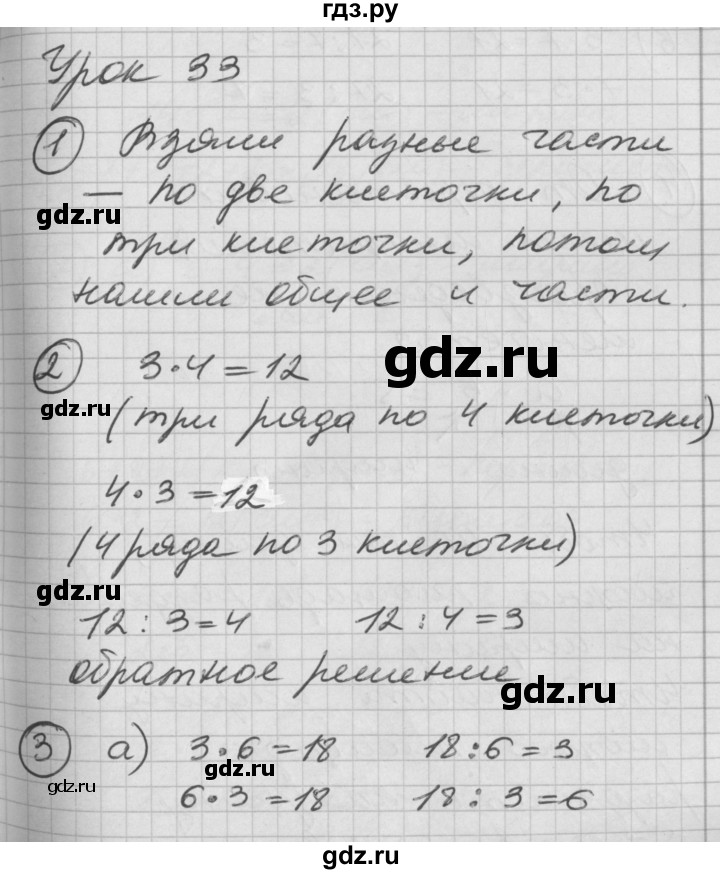 гдз.ру
Урок 33
1 Взяли разные части
— по две клеточки, по
gdz.ru
три клеточки, потом
нашли общее и части.
2 3·4=12
gdz.ru
gdz.ru
(три ряда по 4 клеточки)
4·3=12
(4 ряда по 3 клеточки)
gdz.ru
12:3=4 12:4=3
обратное решение
gdz.ru
3 а) 3·6=18 18:6=3
gdz.ru
gdz.ru
6·3=18 18:3=6
gdz.ru